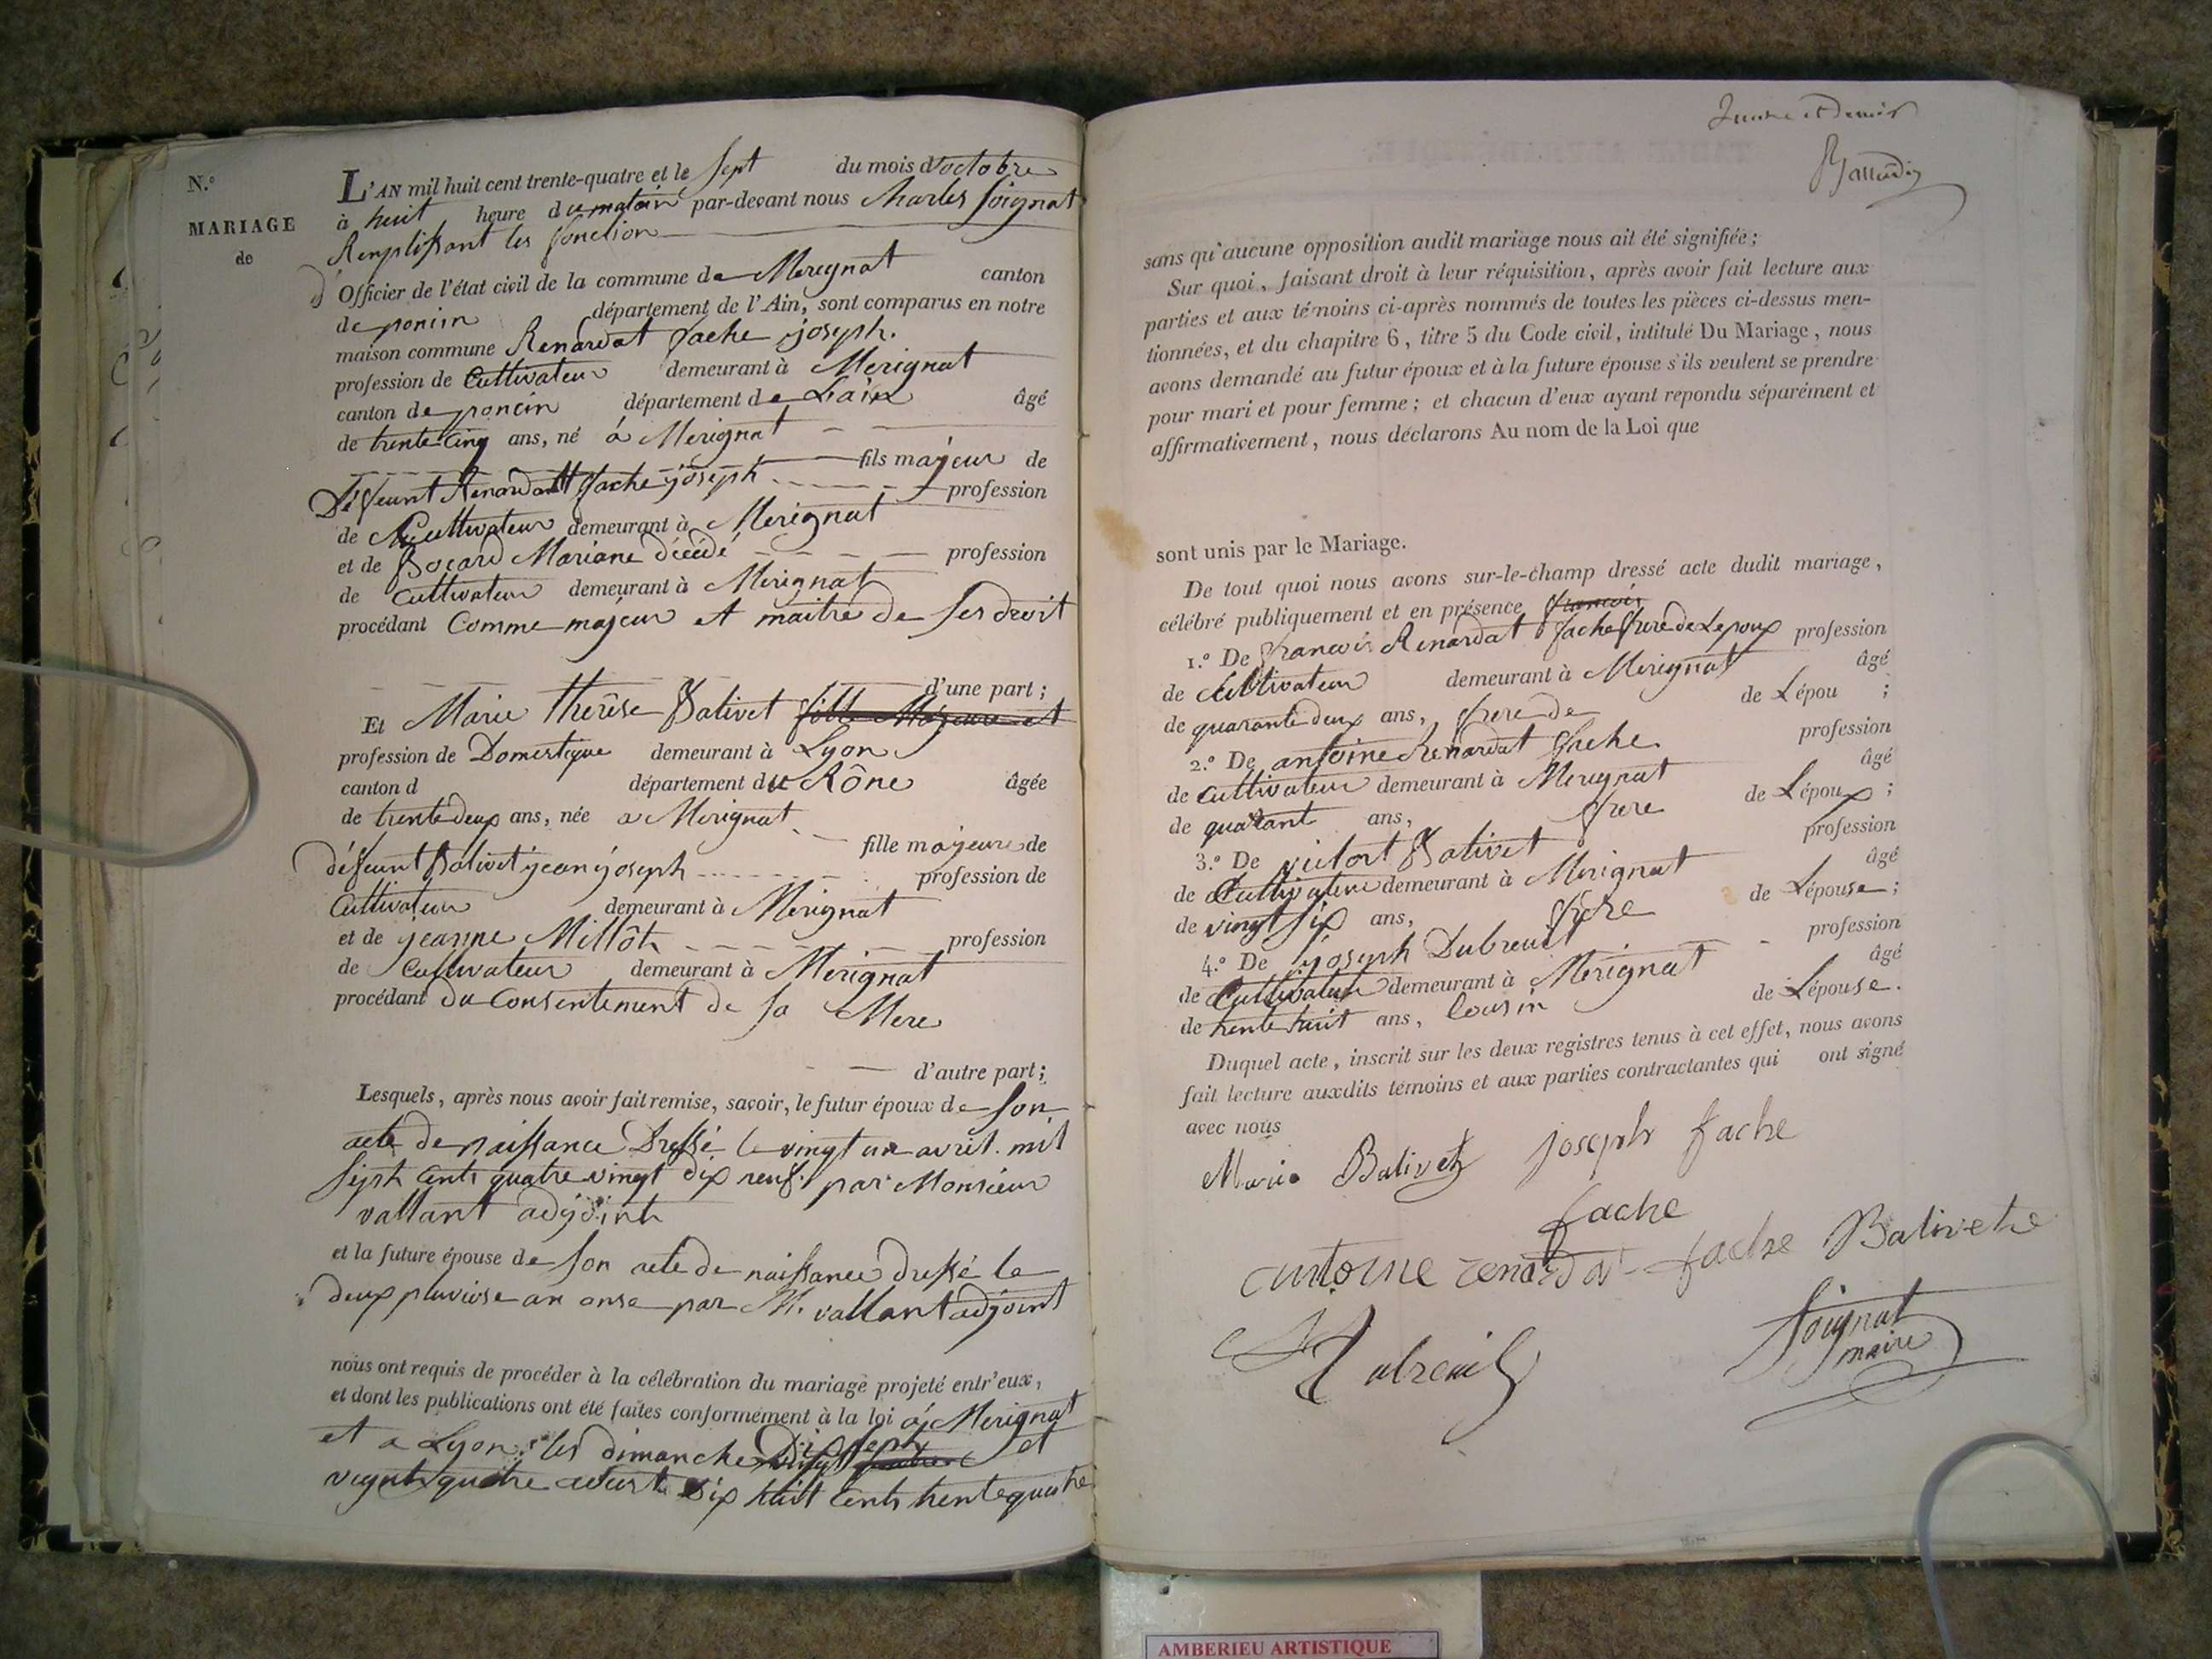 N.º
MARIAGE
de
L'AN mil huit cent trente-quatre et le sept du mois d'octobre
à huit heure du matin par-devant nous Charles Soignat
Remplissant les fonction
Officier de l'état civil de la commune de Merignat canton
de poncin département de l'Ain, sont comparus en notre
maison commune Renardat fache joseph.
profession de Cultivateur demeurant à Merignat
canton de poncin département de Lain âgé
de trente Cinq ans, né à Merignat
fils majeur de
Défeunt Renardat fache joseph profession
de Cultivateur demeurant à Merignat
et de Bocard Mariane décédé profession
de Cultivateur demeurant à Merignat
procédant Comme majeur et maitre de ses droit
d'une part ;
Et Marie therèse Balivet fille Majeure et
profession de Domestique demeurant à Lyon
canton d département du Rône âgée
de trente deux ans, née a Merignat
fille majeure de
défeunt Balivet jean joseph profession de
Cultivateur demeurant à Merignat
et de jeanne Millôt profession
de Cultivateur demeurant à Merignat
procédant du Consentement de sa Mere
d'autre part ;
Lesquels, après nous avoir fait remise, savoir, le futur époux de son
acte de naissance Dressé le vingt un avril mil
sept Cents quatre vingt dix neuf par Monsieur
vallant adjoint
et la future épouse de son acte de naissance dressé le
deux pluviose an onse par M. vallant adjoint
nous ont requis de procéder à la célébration du mariage projeté entr'eux,
et dont les publications ont été faites conformément à la loi à Merignat
et a Lyon les dimanche Dix sept et
vingt quatre aoust dix huit Cents trente quatre
sans qu'aucune opposition audit mariage nous ait été signifiée ;
Sur quoi, faisant droit à leur réquisition, après avoir fait lecture aux
parties et aux témoins ci-après nommés de toutes les pièces ci-dessus men-
tionnées, et du chapitre 6, titre 5 du Code civil, intitulé Du Mariage, nous
avons demandé au futur époux et à la future épouse s'ils veulent se prendre
pour mari et pour femme ; et chacun d'eux ayant repondu séparément et
affirmativement, nous déclarons Au nom de la Loi que
sont unis par le Mariage.
De tout quoi nous avons sur-le-champ dressé acte dudit mariage,
célébré publiquement et en présence francois
1.º De francois Renardat fache frere de Lepoux profession
de Cultivateur demeurant à Merignat âgé
de quarante deux ans, frere de de Lépou ;
2.º De antoine Renardat fache profession
de Cultivateur demeurant à Merignat âgé
de quarant ans, frere de Lépoux ;
3.º De victort Balivet profession
de Cultivateur demeurant à Merignat âgé
de vingt six ans, frere de Lépouse ;
4.º De joseph Dubreuil profession
de Cultivateur demeurant à Merignat âgé
de trente huit ans, Cousin de Lépouse.
Duquel acte, inscrit sur les deux registres tenus à cet effet, nous avons
fait lecture auxdits témoins et aux parties contractantes qui ont signé
avec nous
Marie Balivet joseph fache
fache
antoine renardat fache Balivet
Dubreuil
Soignat
maire
AMBERIEU ARTISTIQUE